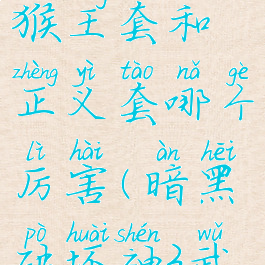 猴王套和
zhèng yì tào nǎ gè
正义套哪个
lì hài àn hēi
厉害(暗黑
pò huài shén wǔ
破坏神3武